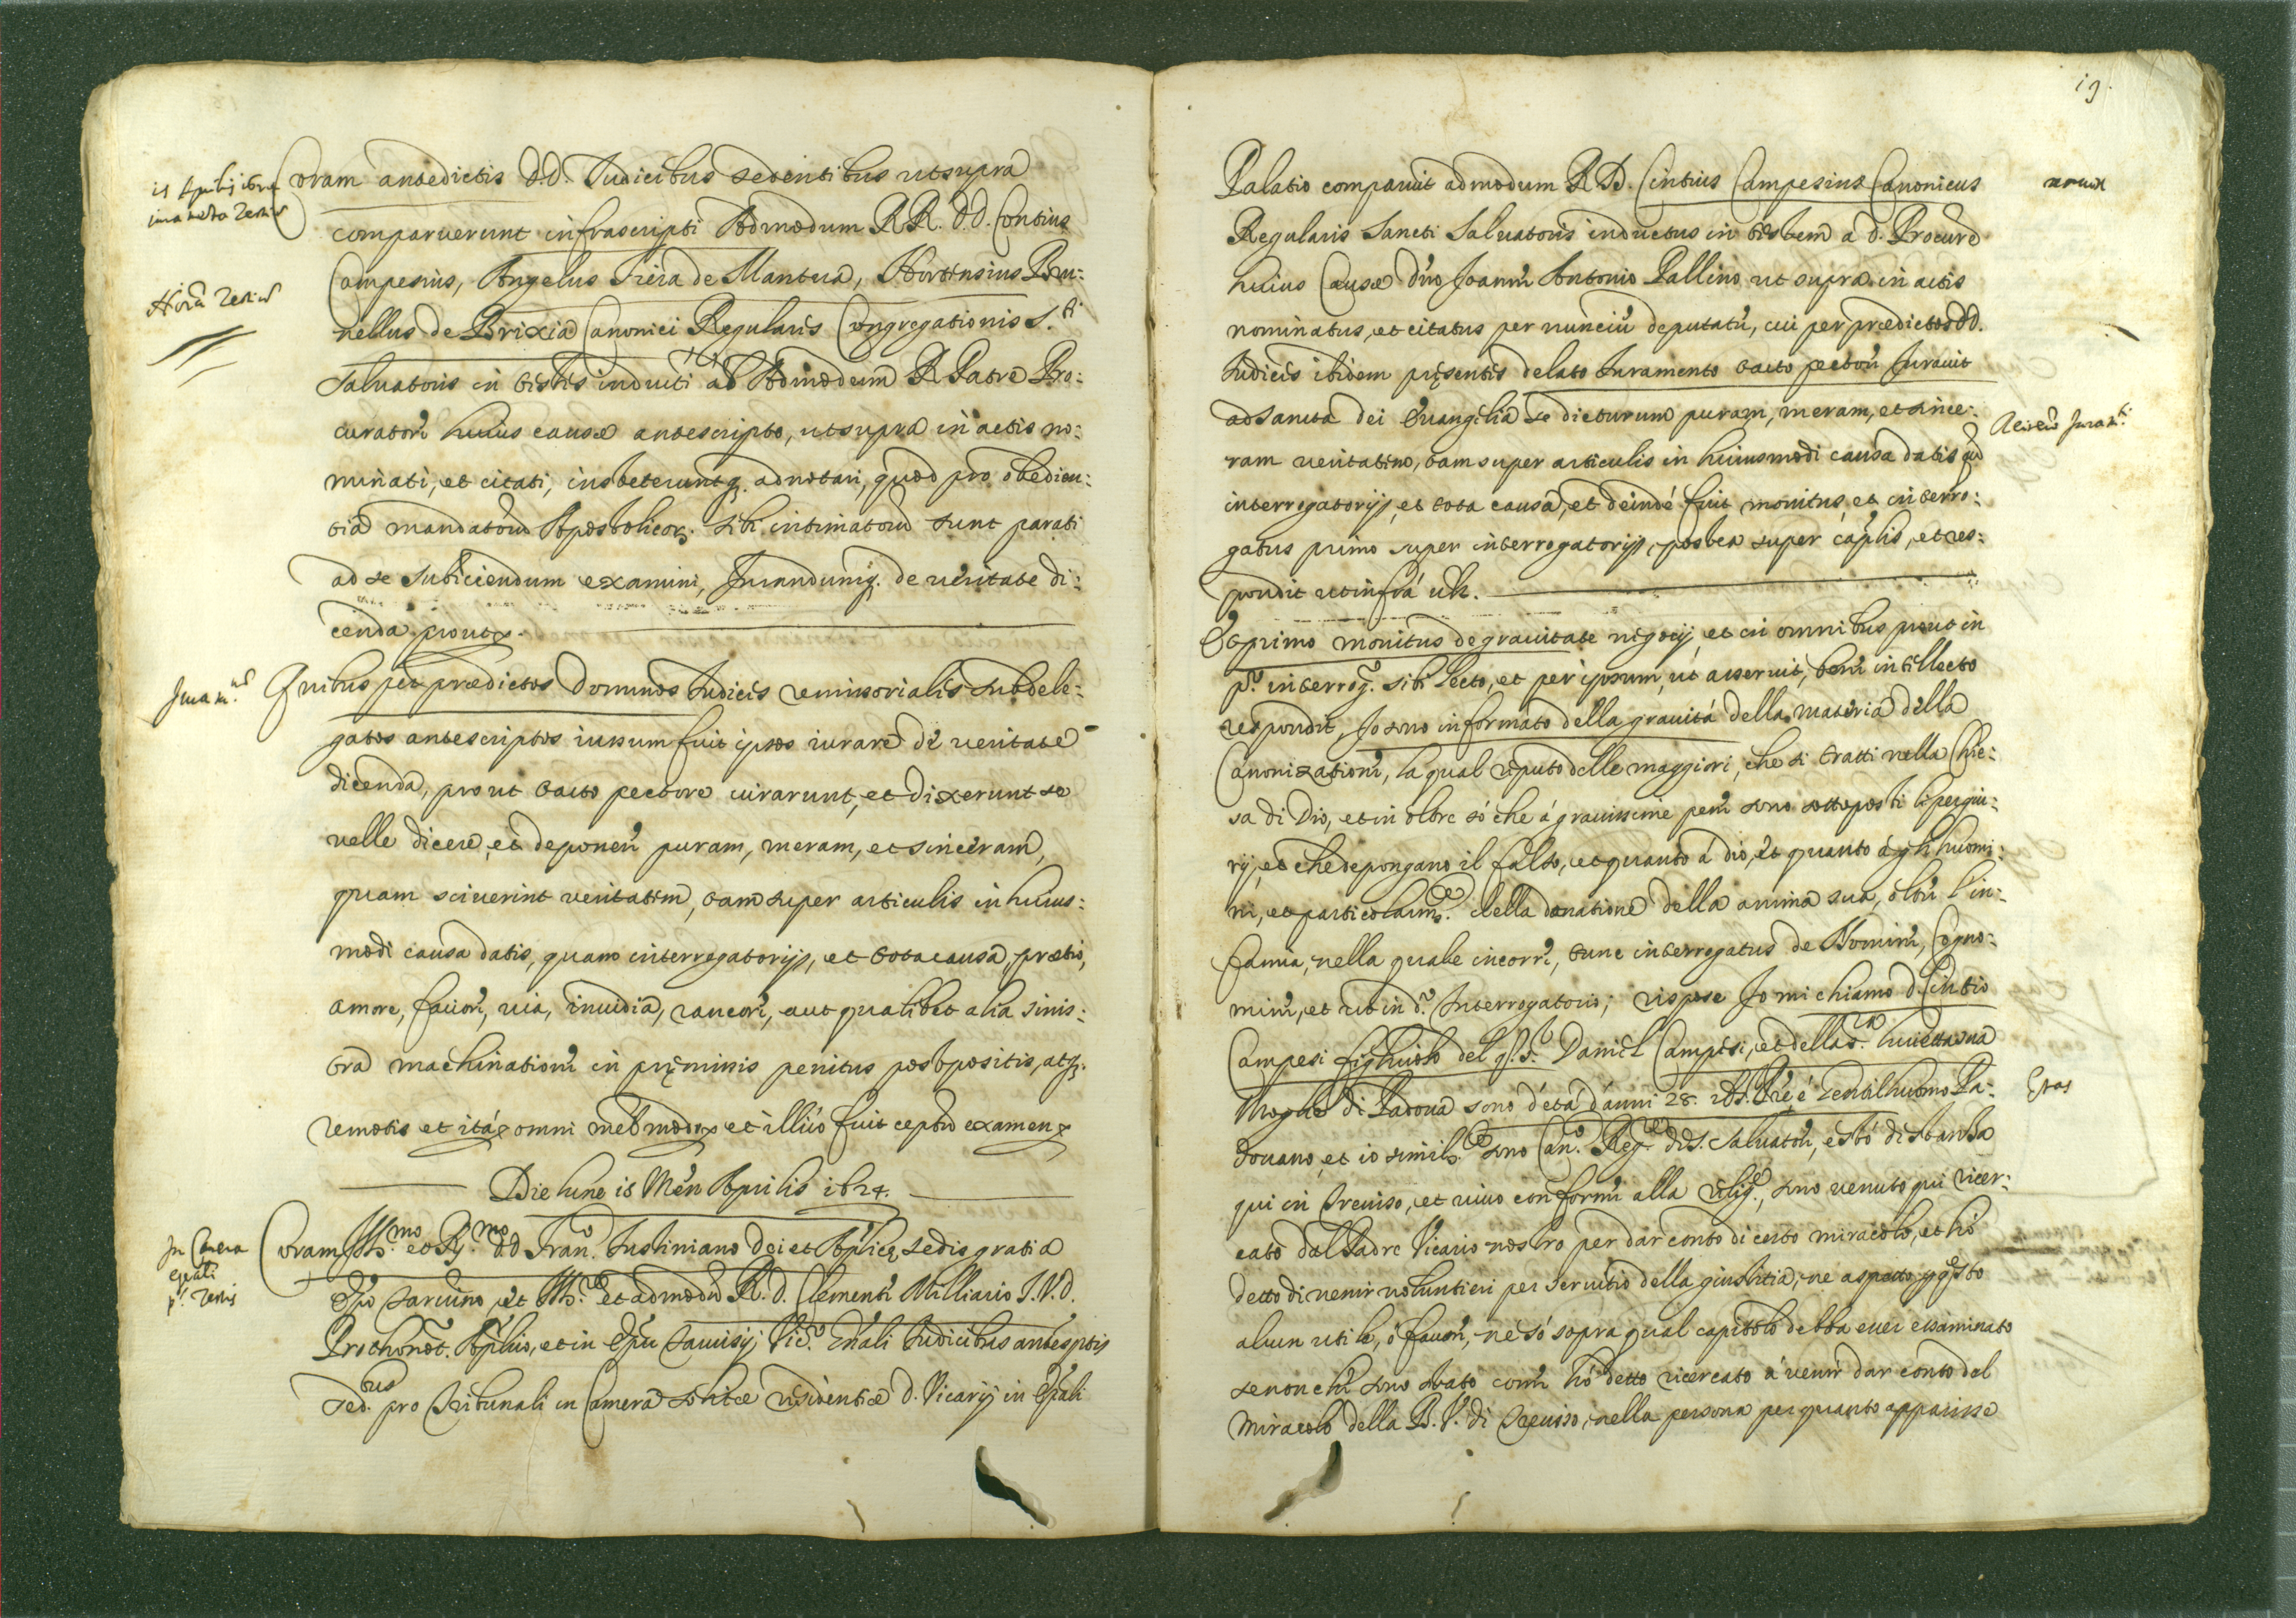 Coram antedictis D.D. Iudicibus sedentibus utsupra
comparuerunt infrascripti Admodum RR. D.D. Contius
Campesius, Angelus Fiera de Mantua, Hortensius Bru:
nellus de Brixia Canonici Regularis Congregationis S.ti
Saluatoris in testes inducti ab Admodum R. Patre Pro:
curatore huius causæ antescripto, utsupra in actis no:
minati, et citati, insteteruntq. adnotari, quod pro obedien:
tia mandatorũ Apostolicor. sibi intimatorũ sunt parati
ad se subiciendum examini, Iurandumq. de veritate di:
cenda prout
Iuram.
Quibus per prædictos Dominos Iudices remissoriales subdele:
gatos antescriptos iussum fuit ipsos iurare de veritate
dicenda, prout tacto pectore iurarunt, et dixerunt se
velle dicere, et deponere puram, meram, et sinceram,
quam sciuerint veritatem, tam super articulis in huius:
modi causa datis, quam interrogatorijs, et tota causa, prætio,
amore, fauore, uia, inuidia, rancore, aut qualibet alia sinis:
tra machinatione in pręmissis penitus postpositis, atq.
remotis et ità omni meb modo et illico fuit ceptũ examen
Die lune is Men Aprilis i624.
In Camera
epali
p.s Testis
Coram Ill.mo et R.mo D.D. Fran.o Iustiniano Dei et Aplicę sedis gratia
Epo Taruino, et Ill.re et admodũ R. D. Clemente Milliario I.V.D.
Prothonot. Aplico, et in Epu Taruisij Vic.o Gnali Iudicibus antesptis
sed.bus pro Tribunali in Camera solitæ residentiæ D. Vicarij in Epali
i9.
Palatio comparuit admodum R. D. Cintius Campesius Canonicus
Regularis Sancti Saluatoris inductus in testem a D. Procure
huius Causæ dño Joanne Antonio Pallino ut supra in actis
nominatus, et citatus per nunciũ deputatũ, cui per prædictos DD.
Iudices ibidem pręsentes delato Iuramento tacto pectore Iurauit
ad sancta Dei Euangelia se dicturum puram, meram, et since:
ram veritatem, tam super articulis in huiusmodi causa datis
interrogatorijs, et tota causa, et deindé fuit monitus, et interro:
gatus primo super interrogatorijs, postea super capłis, et res:
pondit ut infrà
Et primo monitus de grauitate negocij, et in omnibus prout in
p.o interrog. sibi lecto, et per ipsum, ut asseruit, bene intellecto
respondit, Io sono informato della grauità della materia della
Canonizatione, la qual reputo delle maggiori, che si tratti nella Chie:
sa di Dio, et in oltre sò che à grauissime pene sono sottoposti li pergiu:
rij, et che depongano il falso, et quanto à Dio, et quanto à gli huomi:
ni, et particolarm.te della danatione della anima sua, oltre l'in:
famia, nella quale incorre, tunc interrogatus de Nomine, Cogno:
mine, et ut in d.o Interrogatorio; rispose Io mi chiamo D. Cintio
Campesi figliuolo del q. S.r Daniel Campesi, et della S.ra sua
Moglie di Padoua sono d'età d'anni 28. è Gentilhuomo Pa:
Etas
douano, et io simil.te sono Can.o Reg. di S. Saluatore, e stò di stanza
qui in Treuiso, et viuo conforme alla relig.e, sono venuto qui ricer:
cato dal Padre Vicario nostro per dar conto di certo miracolo, et hò
detto di venir voluntieri per seruitio della giustitia, ne aspetto p questo
alcun utile, ò fauore, ne sò sopra qual capitolo debba esser essaminato
se non che sono stato come hò detto ricercato à venir dar conto del
miracolo della B. V. di Treuiso, nella persona per quanto apparisse